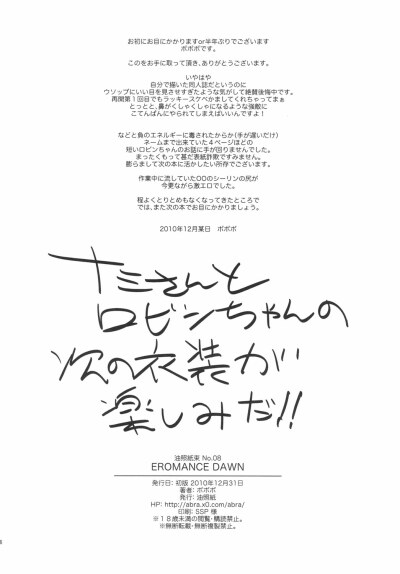 お初にお目にかかりますor半年ぶりでございます
ボボボです。
この本をお手に取って頂き、ありがとうございます。
いやはや
自分で描いた同人誌だというのに
ウソップにいい目を見させすぎたような気がして絶賛後悔中です。
再開第1回目でもラッキースケベかましてくれちゃってまぁ
とっとと、鼻がくしゃくしゃになるような強敵に
こてんぱんにやられてしまえばいいんですよ！
などと負のエネルギーに毒されたからか(手が遅いだけ)
ネームまで出来ていた4ページほどの
短いロビンちゃんのお話に手が回りませんでした。
まったくもって甚だ表紙詐欺ですみません。
膨らまして次の本に活かしたい所存でございます。
作業中に流していたOOのシーリンの尻が
今更ながら激エロでした。
程よくとりとめもなくなってきたところで
では、また次の本でお目にかかりましょう。
2010年12月某日　ボボボ
ナミさんと
ロビンちゃんの
次の衣装が
楽しみだ!!
油照紙束 No.08
EROMANCE DAWN
発行日: 初版 2010年12月31日
著者: ボボボ
発行: 油照紙
HP: http://abra.x0.com/abra/
印刷: SSP 様
※18歳未満の閲覧・購読禁止。
※無断転載・無断複製禁止。